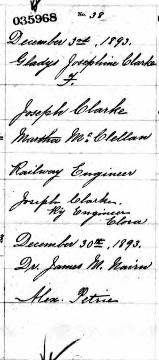 035968
No. 38
December 3rd, 1893.
Gladys Josephine Clarke
F.
Joseph Clarke
Martha McClellan
Railway Engineer
Joseph Clarke.
Ry Engineer
Elora
December 30th, 1893.
Dr. James M. Nairn
Alex. Petrie